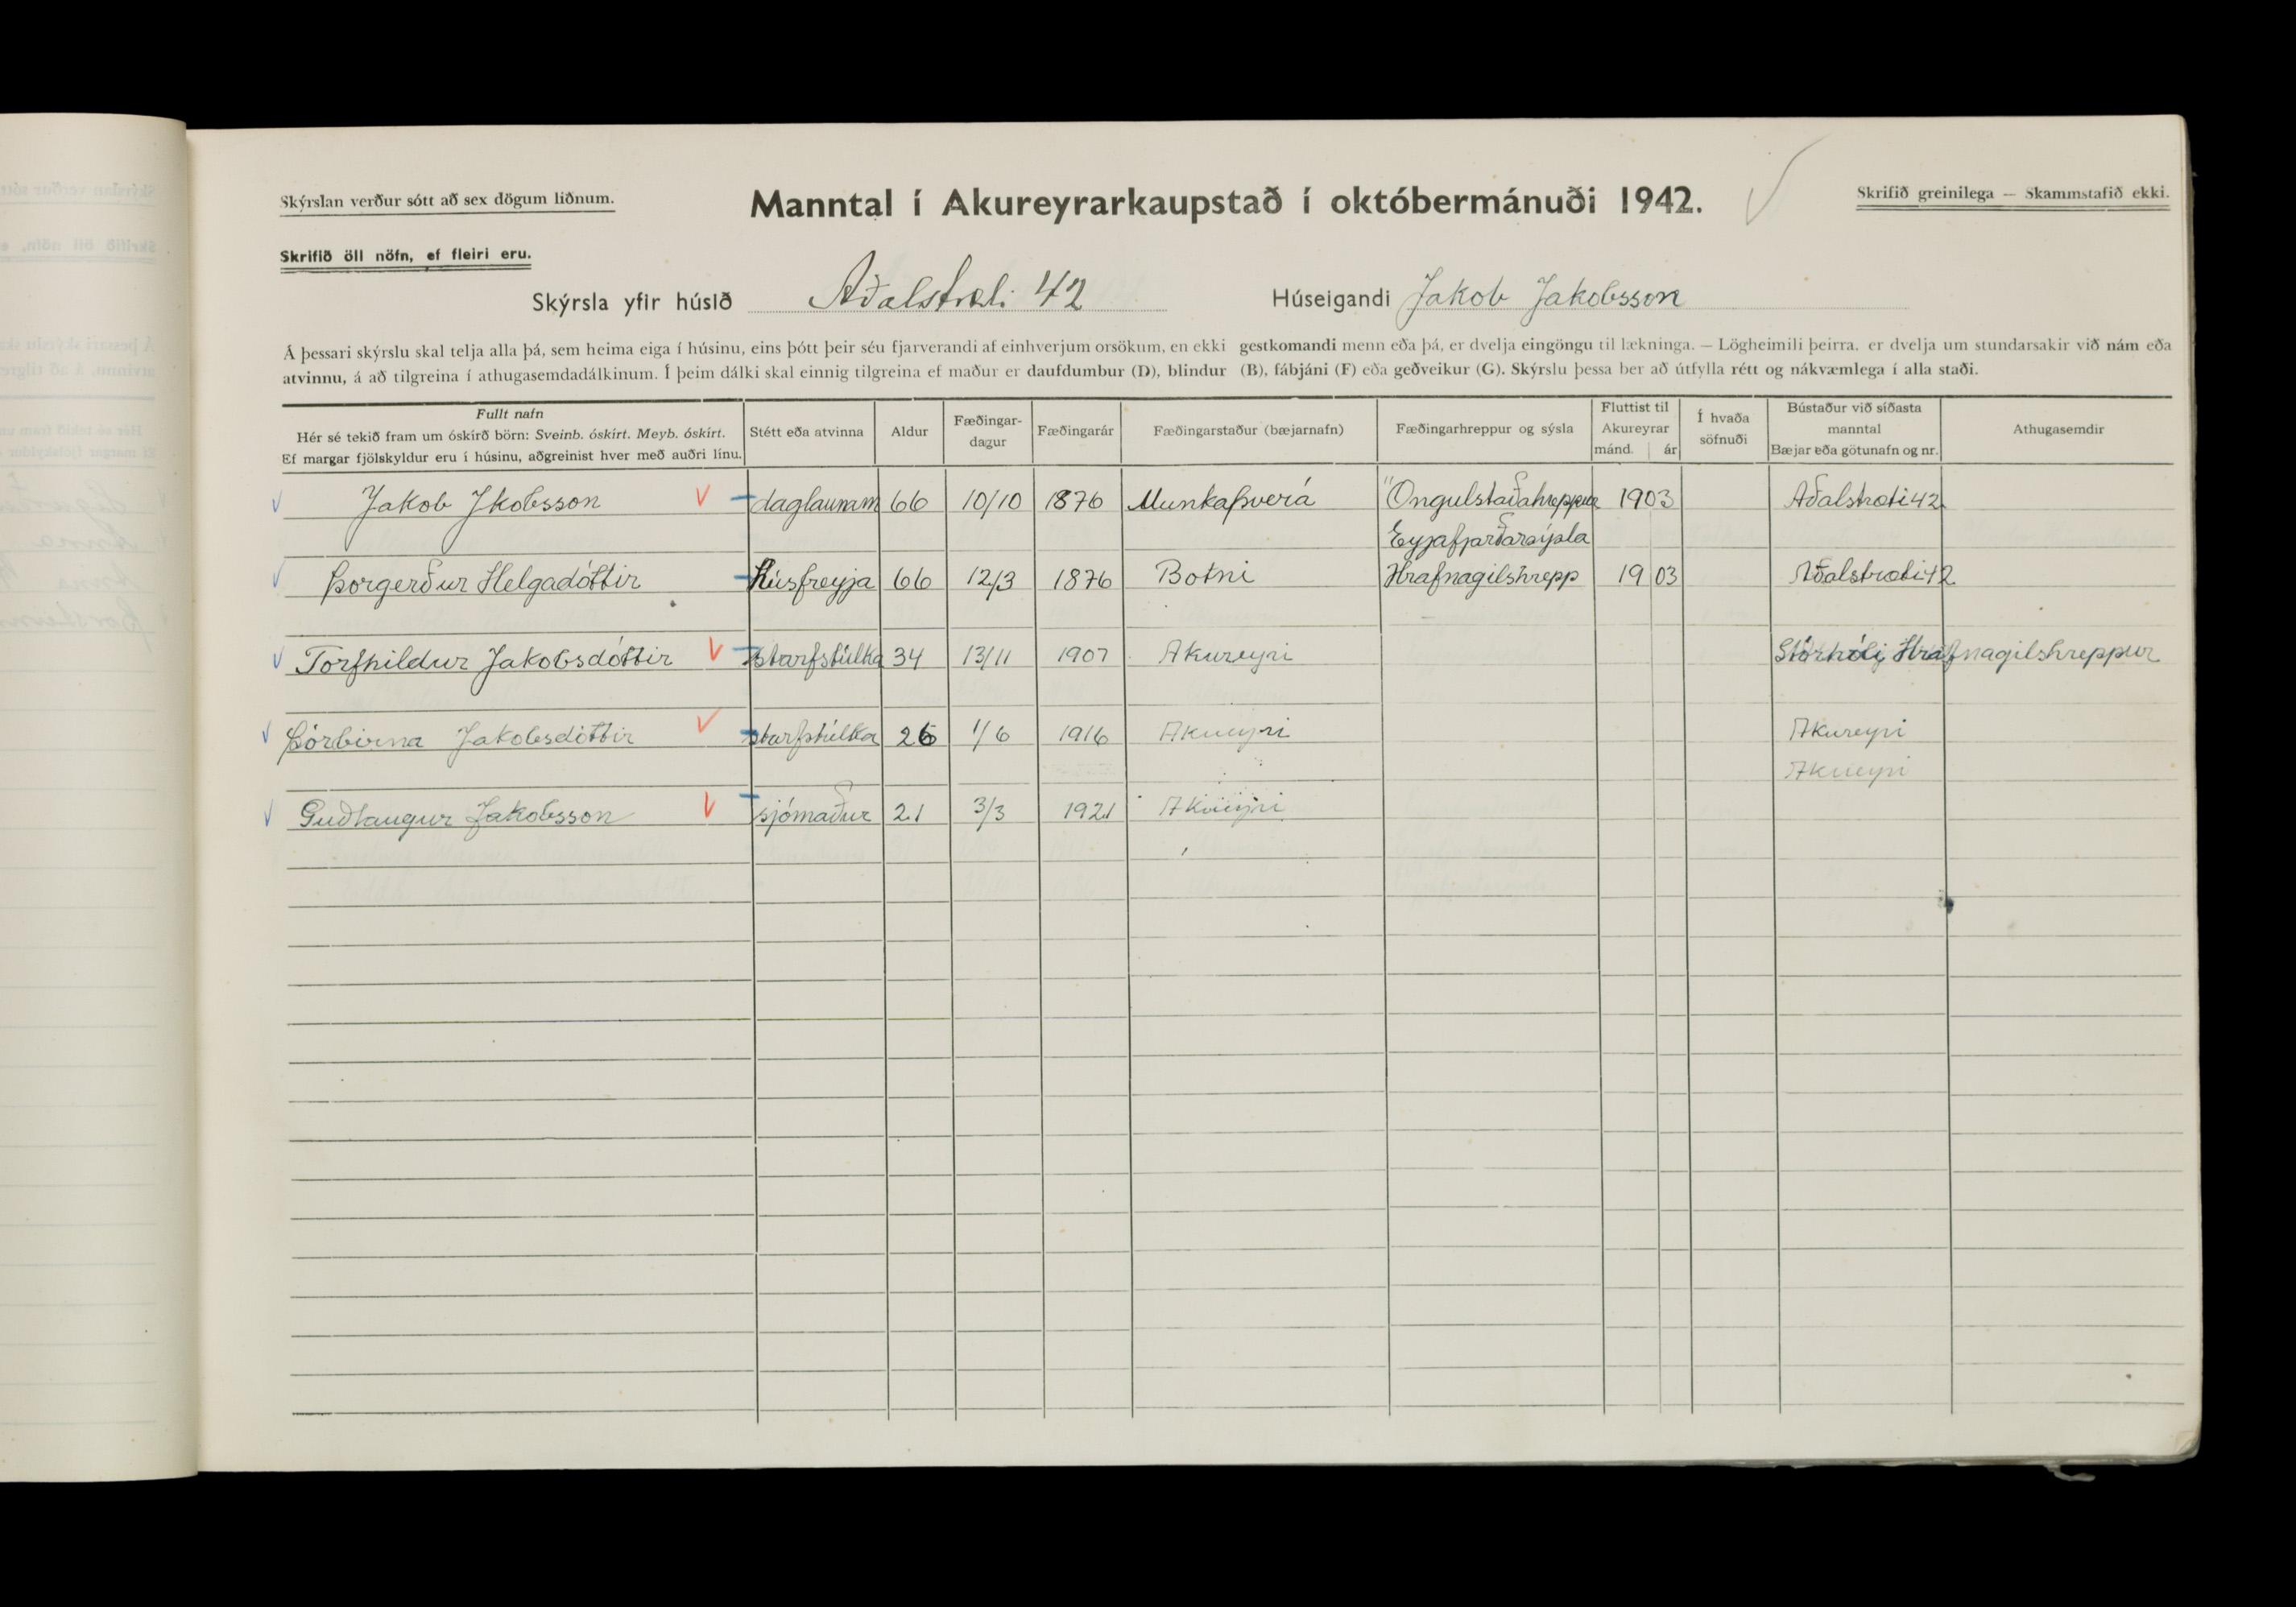 Skýrslan verður sótt að sex dögum liðnum.
Manntal í Akureyrarkaupstað í októbermánuði 1942.
Skrifið greinilega — Skammstafið ekki.
Skrifið öll nöfn, ef fleiri eru.
Skýrsla yfir húsið Aðalstræti 42 Húseigandi Jakob Jakobsson
Á þessari skýrslu skal telja alla þá, sem heima eiga í húsinu, eins þótt þeir séu fjarverandi af einhverjum orsökum, en ekki gestkomandi menn eða þá, er dvelja eingöngu til lækninga. — Lögheimili þeirra. er dvelja um stundarsakir við nám eða
atvinnu, á að tilgreina í athugasemdadálkinum. Í þeim dálki skal einnig tilgreina ef maður er daufdumbur (D), blindur (B), fábjáni (F) eða geðveikur (G). Skýrslu þessa ber að útfylla rétt og nákvæmlega í alla staði.
Fullt nafn
Hér sé tekið fram um óskírð börn: Sveinb. óskírt. Meyb. óskírt.
Ef margar fjölskyldur eru í húsinu, aðgreinist hver með auðri línu.
Stétt eða atvinna
Aldur
Fæðingar-
dagur
Fæðingarár
Fæðingarstaður (bæjarnafn)
Fæðingarhreppur og sýsla
Fluttist til
Akureyrar
mánd. ár
Í hvaða
söfnuði
Bústaður við síðasta
manntal
Bæjar eða götunafn og nr.
Athugasemdir
Jakob Jkobsson daglaunam 66 10/10 1876 Munkaþverá Öngulstaðahreppur 1903 Aðalstræti 42
Eyjafjarðarsýsla
Þorgerður Helgadóttir Húsfreyja 66 12/3 1876 Botni Hrafnagilshrepp 1903 Aðalstræti 42
Torfhildur Jakobsdóttir starfstúlka 34 13/11 1907 Akureyri Stórhóli, Hrafnagilshreppur
Þórbirna Jakobsdóttir starfstúlka 26 1/6 1916 Akureyri Akureyri
Akureyri
Guðlaugur Jakobsson sjómaður 21 3/3 1921 Akureyri